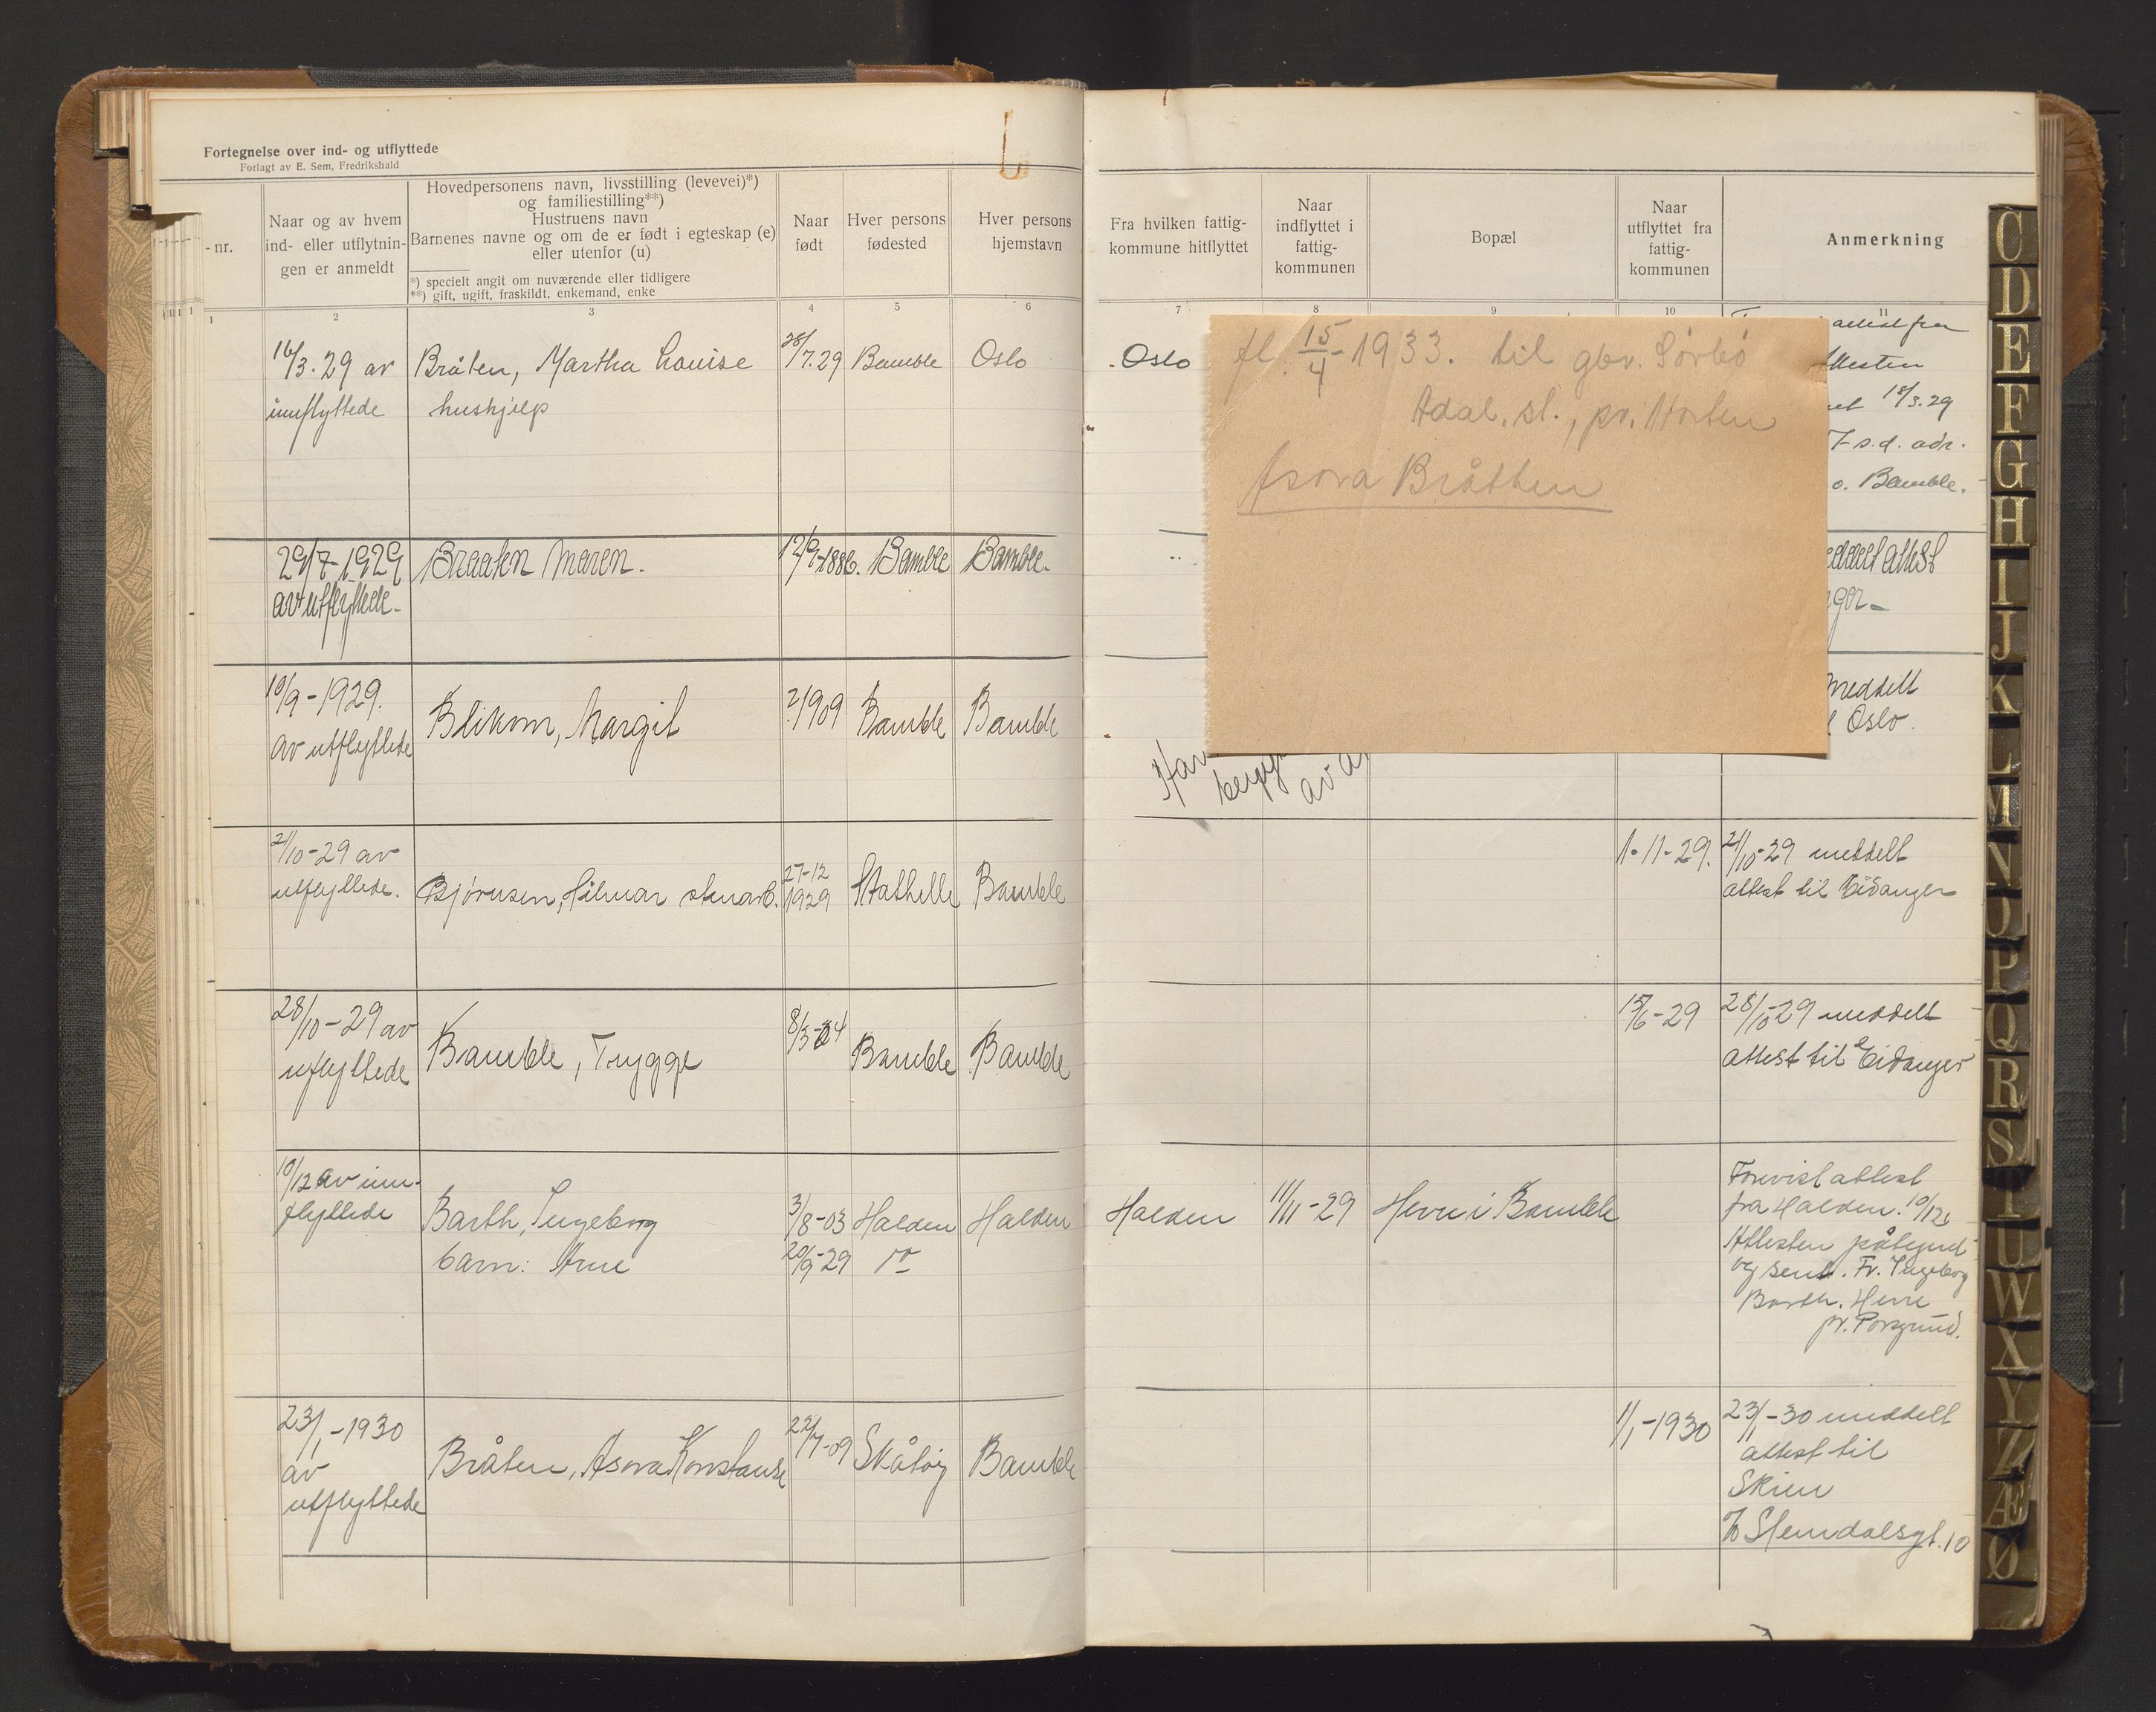 Fortegnelse over ind- og utflyttede
Forlagt av E. Sem, Fredrikshald
- nr.
Naar og av hvem
ind- eller utflytnin-
gen er anmeldt
Hovedpersonens navn, livsstilling (levevei)*)
og familiestilling**)
Hustruens navn
Barnenes navne og om de er født i egteskap (e)
eller utenfor (u)
*) specielt angit om nuværende eller tidligere
**) gift, ugift, fraskildt, enkemand, enke
Naar
født
Hver persons
fødested
Hver persons
hjemstavn
Fra hvilken fattig-
kommune hitflyttet
Naar
indflyttet i
fattig-
kommunen
Bopæl
Naar
utflyttet fra
fattig-
kommunen
Anmerkning
1 2 3 4 5 6 7 8 9 10 11
16/3. 29 av
innflyttede
Bråten, Martha Louise
hushjelp
28/7. 29
Bamble
Oslo
Oslo
attest fra
Attesten
18/3. 29
s.d. adr.
o. Bamble.
fl. 15/4-1933. til gbr. Sørbø
Adal. st., pr. Horten
Asora Bråthen
29/7-1929
av utflyttede-
Braaten Maren.
12/9-1886.
Bamble
Bamble-
attest
10/9-1929.
av utflyttede
Blikom, Margit
2/1909
Bamble
Bamble
meddelt
Oslo.
av
21/10-29 av
utflyttede.
Bjørnsen, Hilmar stenarb.
27-12
1929
Stathelle
Bamble
1-11-29.
21/10-29 meddelt
attest til Eidanger
28/10-29 av
utflyttede
Bamble, Trygge
8/3-04
Bamble
Bamble
15/6-29
28/10-29 meddelt
attest til Eidanger
10/12 av inn-
flyttede
Barth, Ingeborg
barn: Arne
3/8-03
20/9-29
Halden
Halden
Halden
11/11-29
Herre i Bamble
Forevist attest
fra Halden. 10/12.
Attesten påtegnet
og sendt. Fr. Ingeborg
Barth. Herre
pr. Porsgrund.
23/1-1930
av
utflyttede
Bråten, Asora Konstanse
22/7-09
Skåtøy
Bamble
1/1-1930
23/1-30 meddelt
attest til
Skien
Stendalsgt. 10
C
D
E
F
G
H
I
J
K
L
M
N
O
P
Q
R
S
T
U
W
X
Y
Z
Æ
Ø